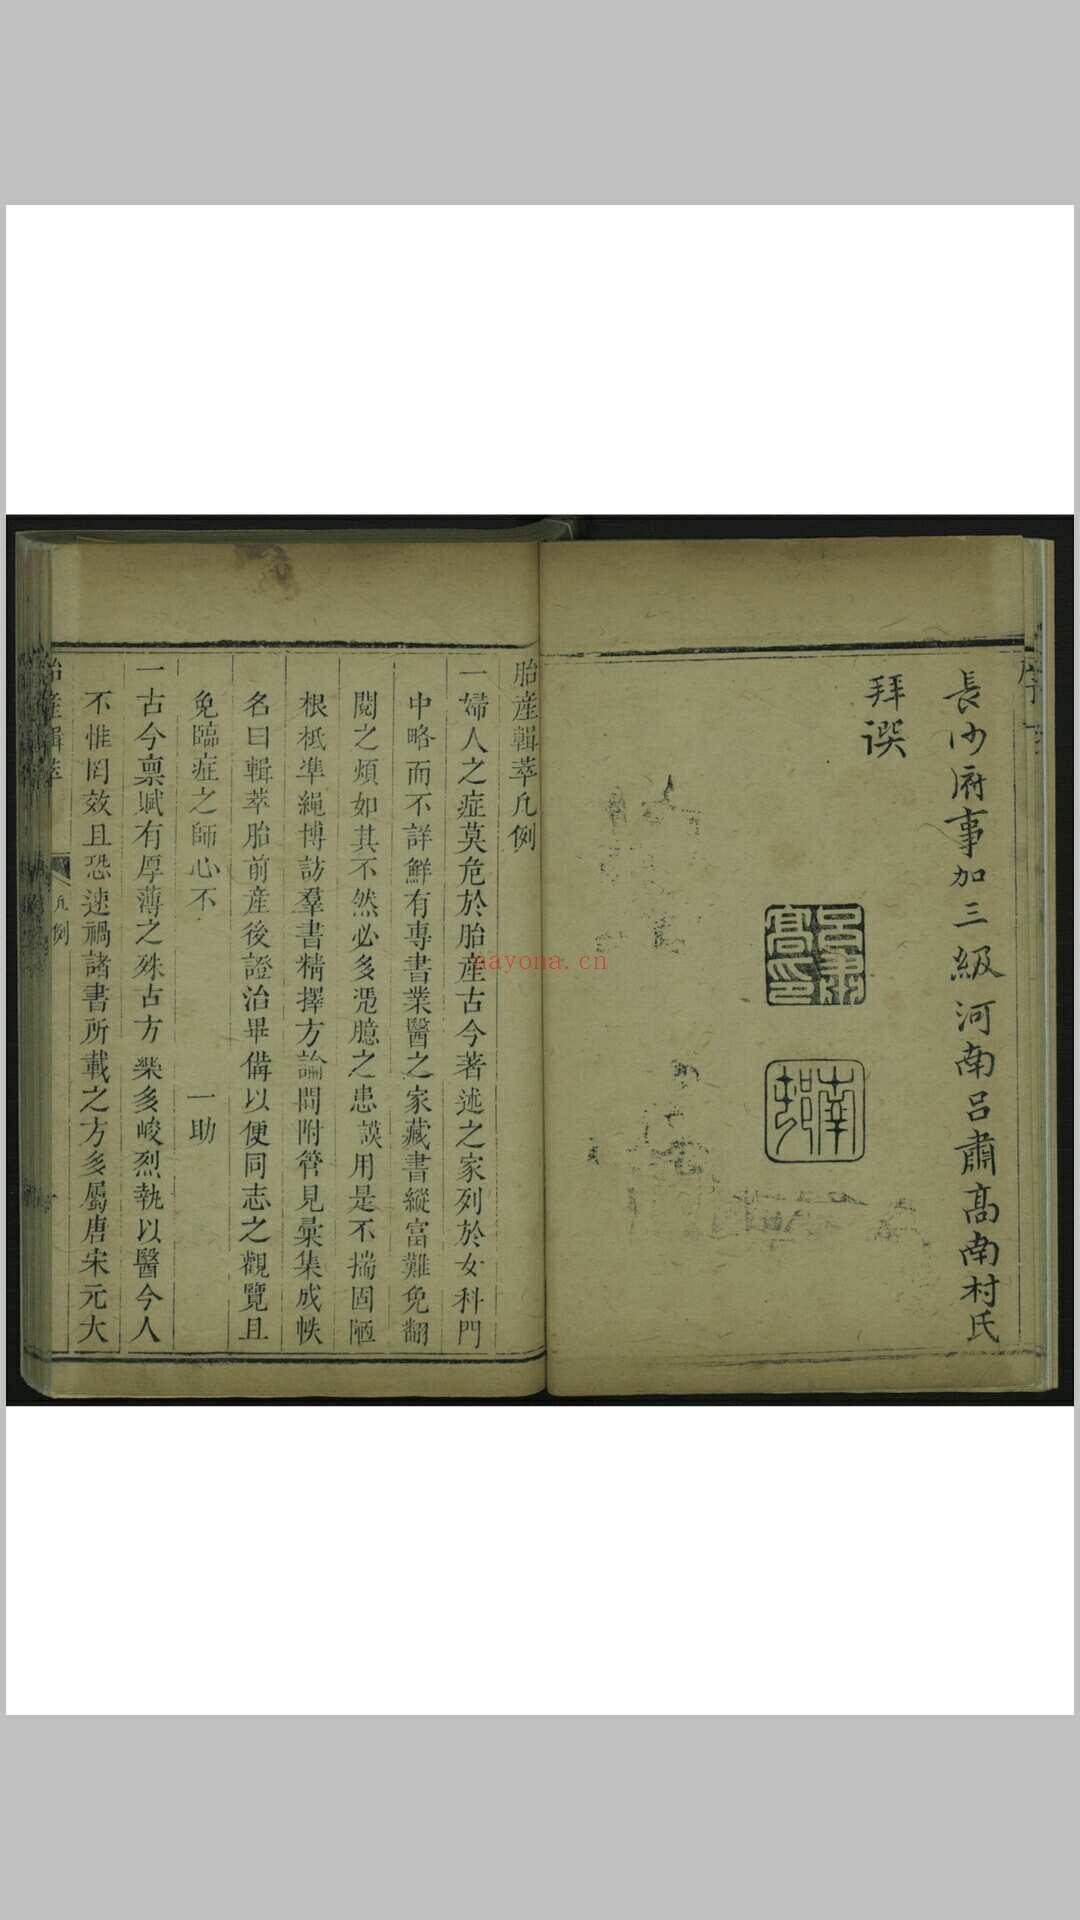 長沙府事加三級河南呂肅高南村氏
拜撰
呂肅高印
南村
胎產輯萃凡例
一婦人之症莫危於胎產古今著述之家列於女科門
中略而不詳鮮有專書業醫之家藏書縱富難免翻
閱之煩如其不然必多憑臆之患誤用是不揣固陋
根柢準繩博訪羣書精擇方論間附管見彙集成帙
名曰輯萃胎前產後證治畢備以便同志之觀覽且
免臨症之師心不
一助
一古今稟賦有厚薄之殊古方槩多峻烈執以醫今人
不惟罔效且恐速禍諸書所載之方多屬唐宋元大
胎產輯萃
凡例
nayona.cn